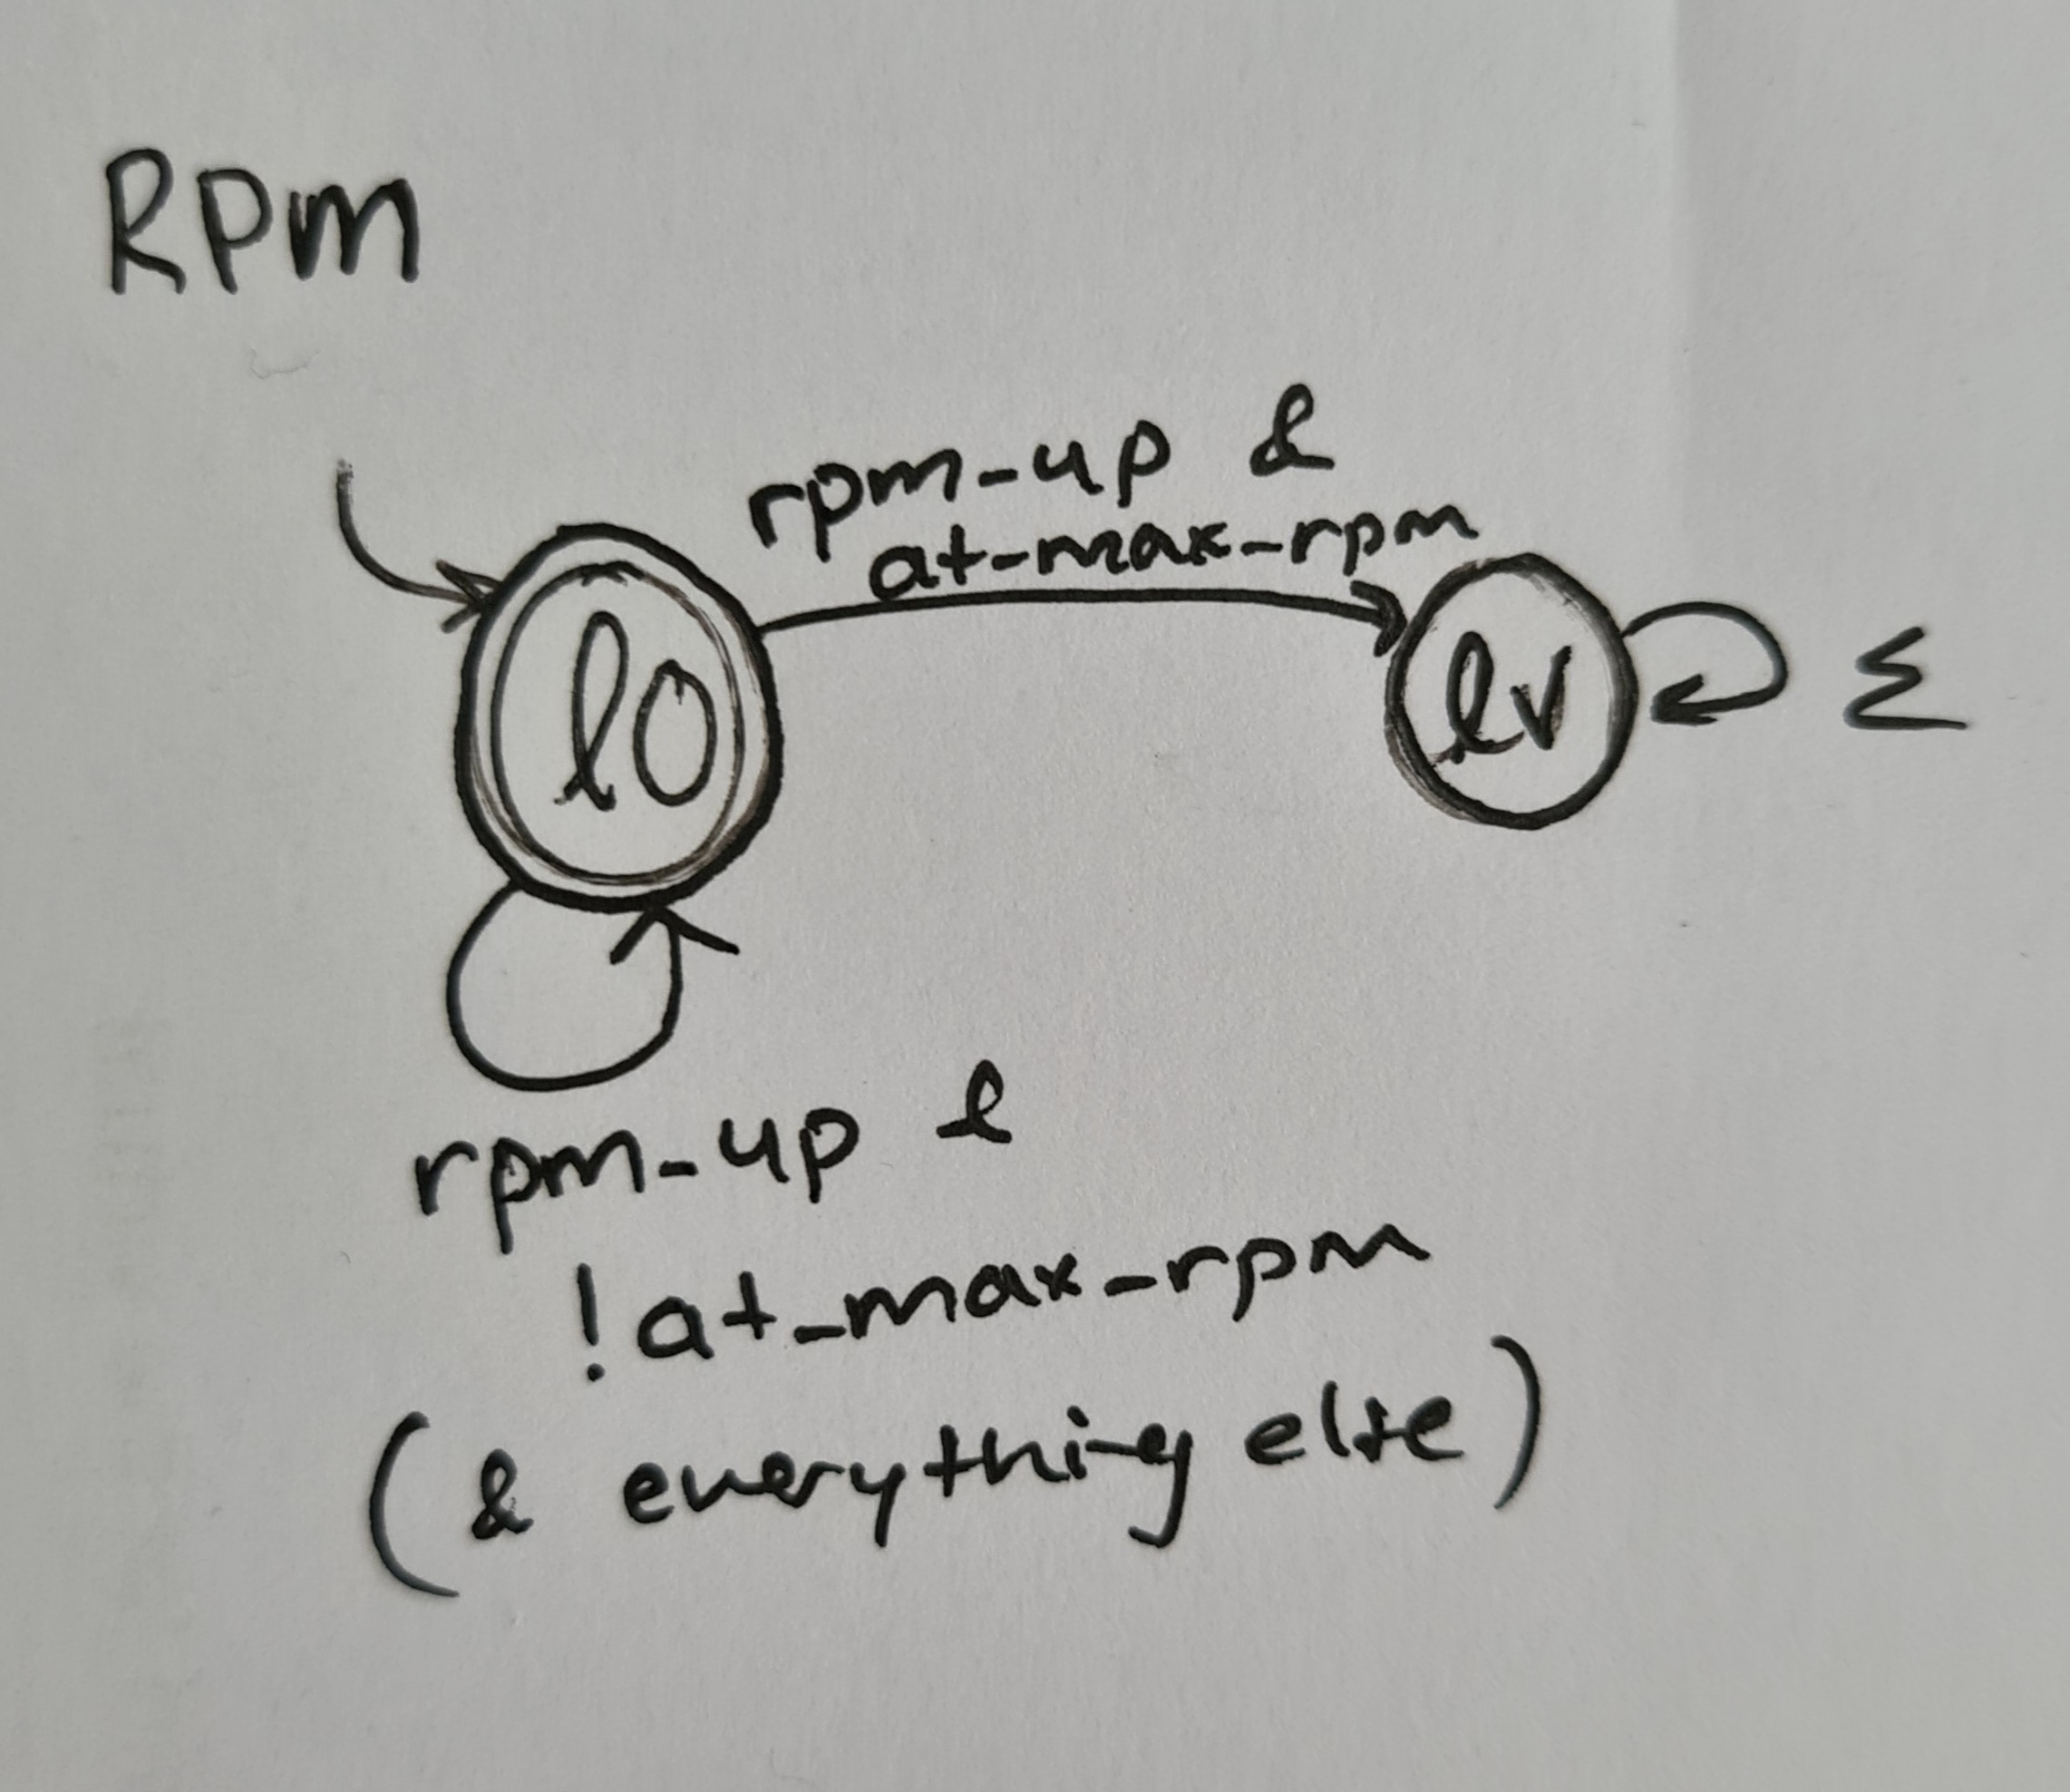 RPM
rpm-up &
at-max-rpm
l0
lv
Σ
rpm-up &
!at_max_rpm
(& everything else)